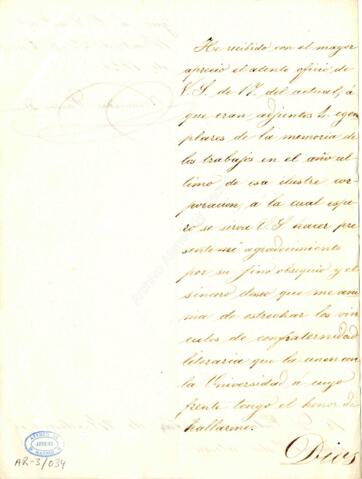 He recibido con el mayor
aprecio el atento oficio de
V.S. de 17 del actual, á
que eran adjuntos 4 egem-
plares de la memoria de
los trabajos en el año úl-
timo de esa ilustre cor-
poracion, a la cual espe-
ro se sirva V.S. hacer pre-
sente mi agradecimiento
por su fino obsequio y el
sincero deseo que me ani-
ma de estrechar los vin-
culos de confraternidad
literaria que la unen con
la Universidad a cuyo
frente tengo el honor de
hallarme.
Dios
ATENEO DE
MADRID
AR-3/034
Archivo Ateneo